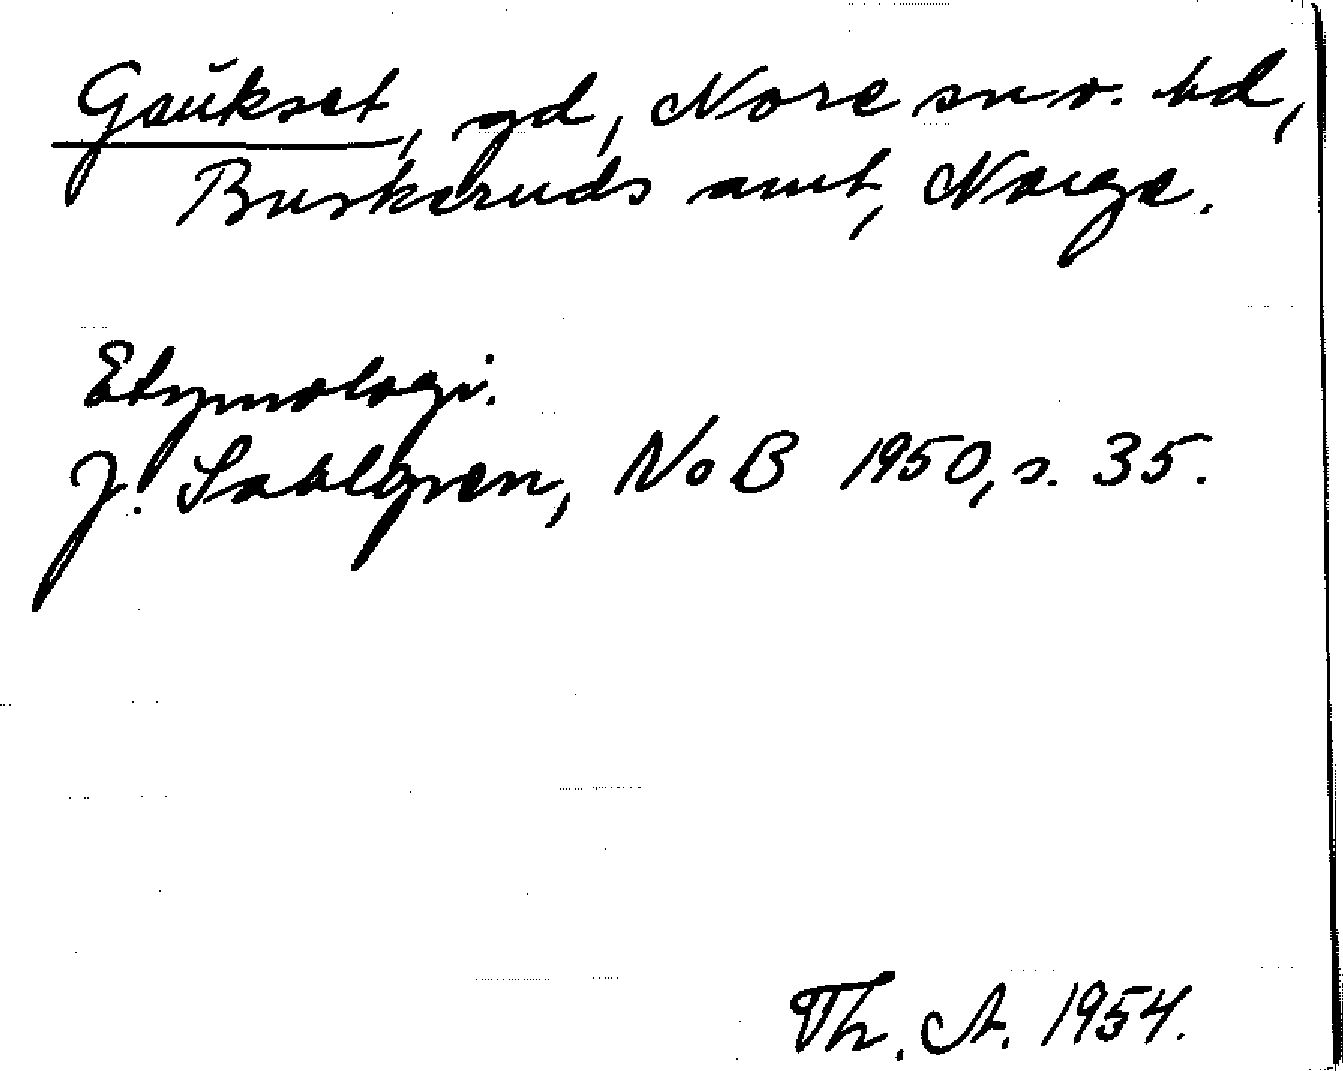 Gaŭkset, gd, Nore sn o. hd,
Buskeruds amt, Norge.
Etymologi.
J. Sahlgren, NoB 1950, s. 35.
Th. A. 1954.